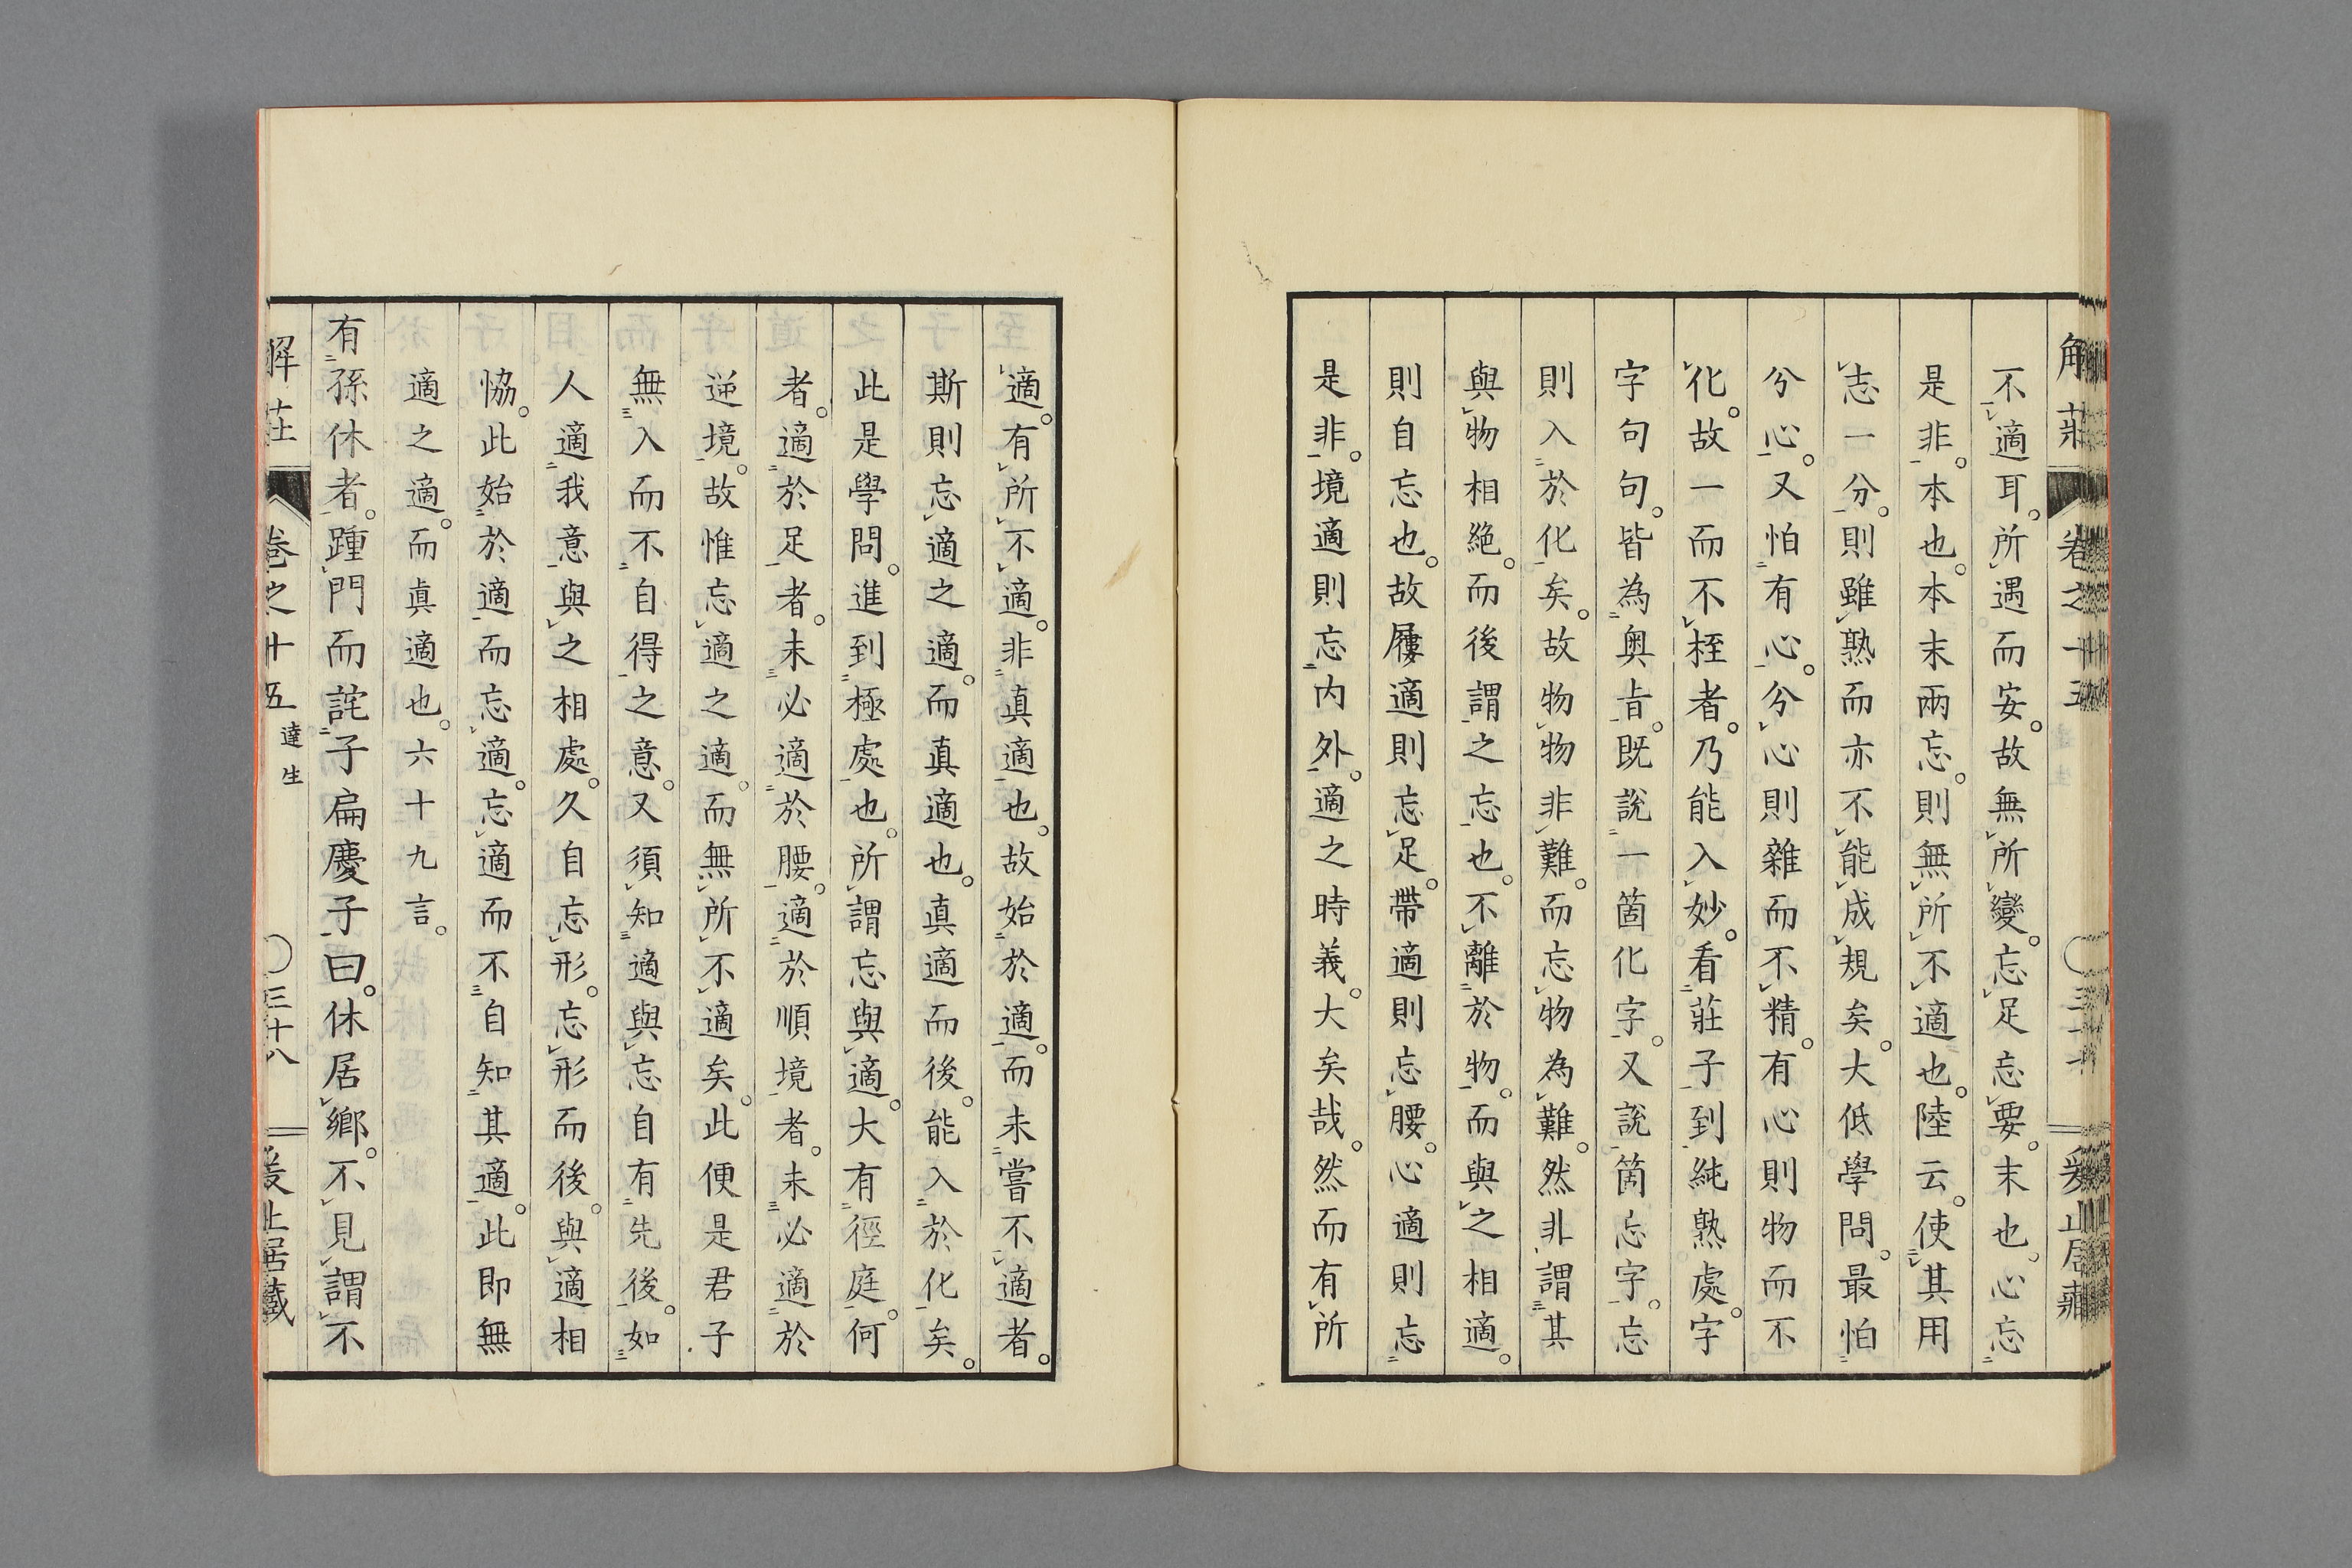 不適耳。所遇而安。故無所變。忘足忘要。末也。心忘
是非。本也。本末兩忘。則無所不適也。陸云。使其用
志一分。則雖熟而亦不能成規矣。大低學問。最怕
分心。又怕有心。分心則雜而不精。有心則物而不
化。故一而不桎者。乃能入妙。看莊子到純熟處。字
字句句。皆為奧旨。既說一箇化字。又說箇忘字。忘
則入於化矣。故物物非難。而忘物為難。然非謂其
與物相絶。而後謂之忘也。不離於物。而與之相適。
則自忘也。故屨適則忘足。帶適則忘腰。心適則忘
是非。境適則忘内外。適之時義。大矣哉。然而有所
適。有所不適。非真適也。故始於適。而未嘗不適者。
斯則忘適之適。而真適也。真適而後。能入於化矣。
此是學問。進到極處也。所謂忘與適。大有徑庭。何
者。適於足者。未必適於腰。適於順境者。未必適於
逆境。故惟忘適之適。而無所不適矣。此便是君子
無入而不自得之意。又須知適與忘自有先後。如
人適我意。與之相處。久自忘形。忘形而後。與適相
恊。此始於適而忘適。忘適而不自知其適。此即無
適之適。而眞適也。六十九言。
有孫休者。踵門而詫子扁慶子曰。休居鄉。不見謂不
解莊 卷之十五 達生 〇三十八